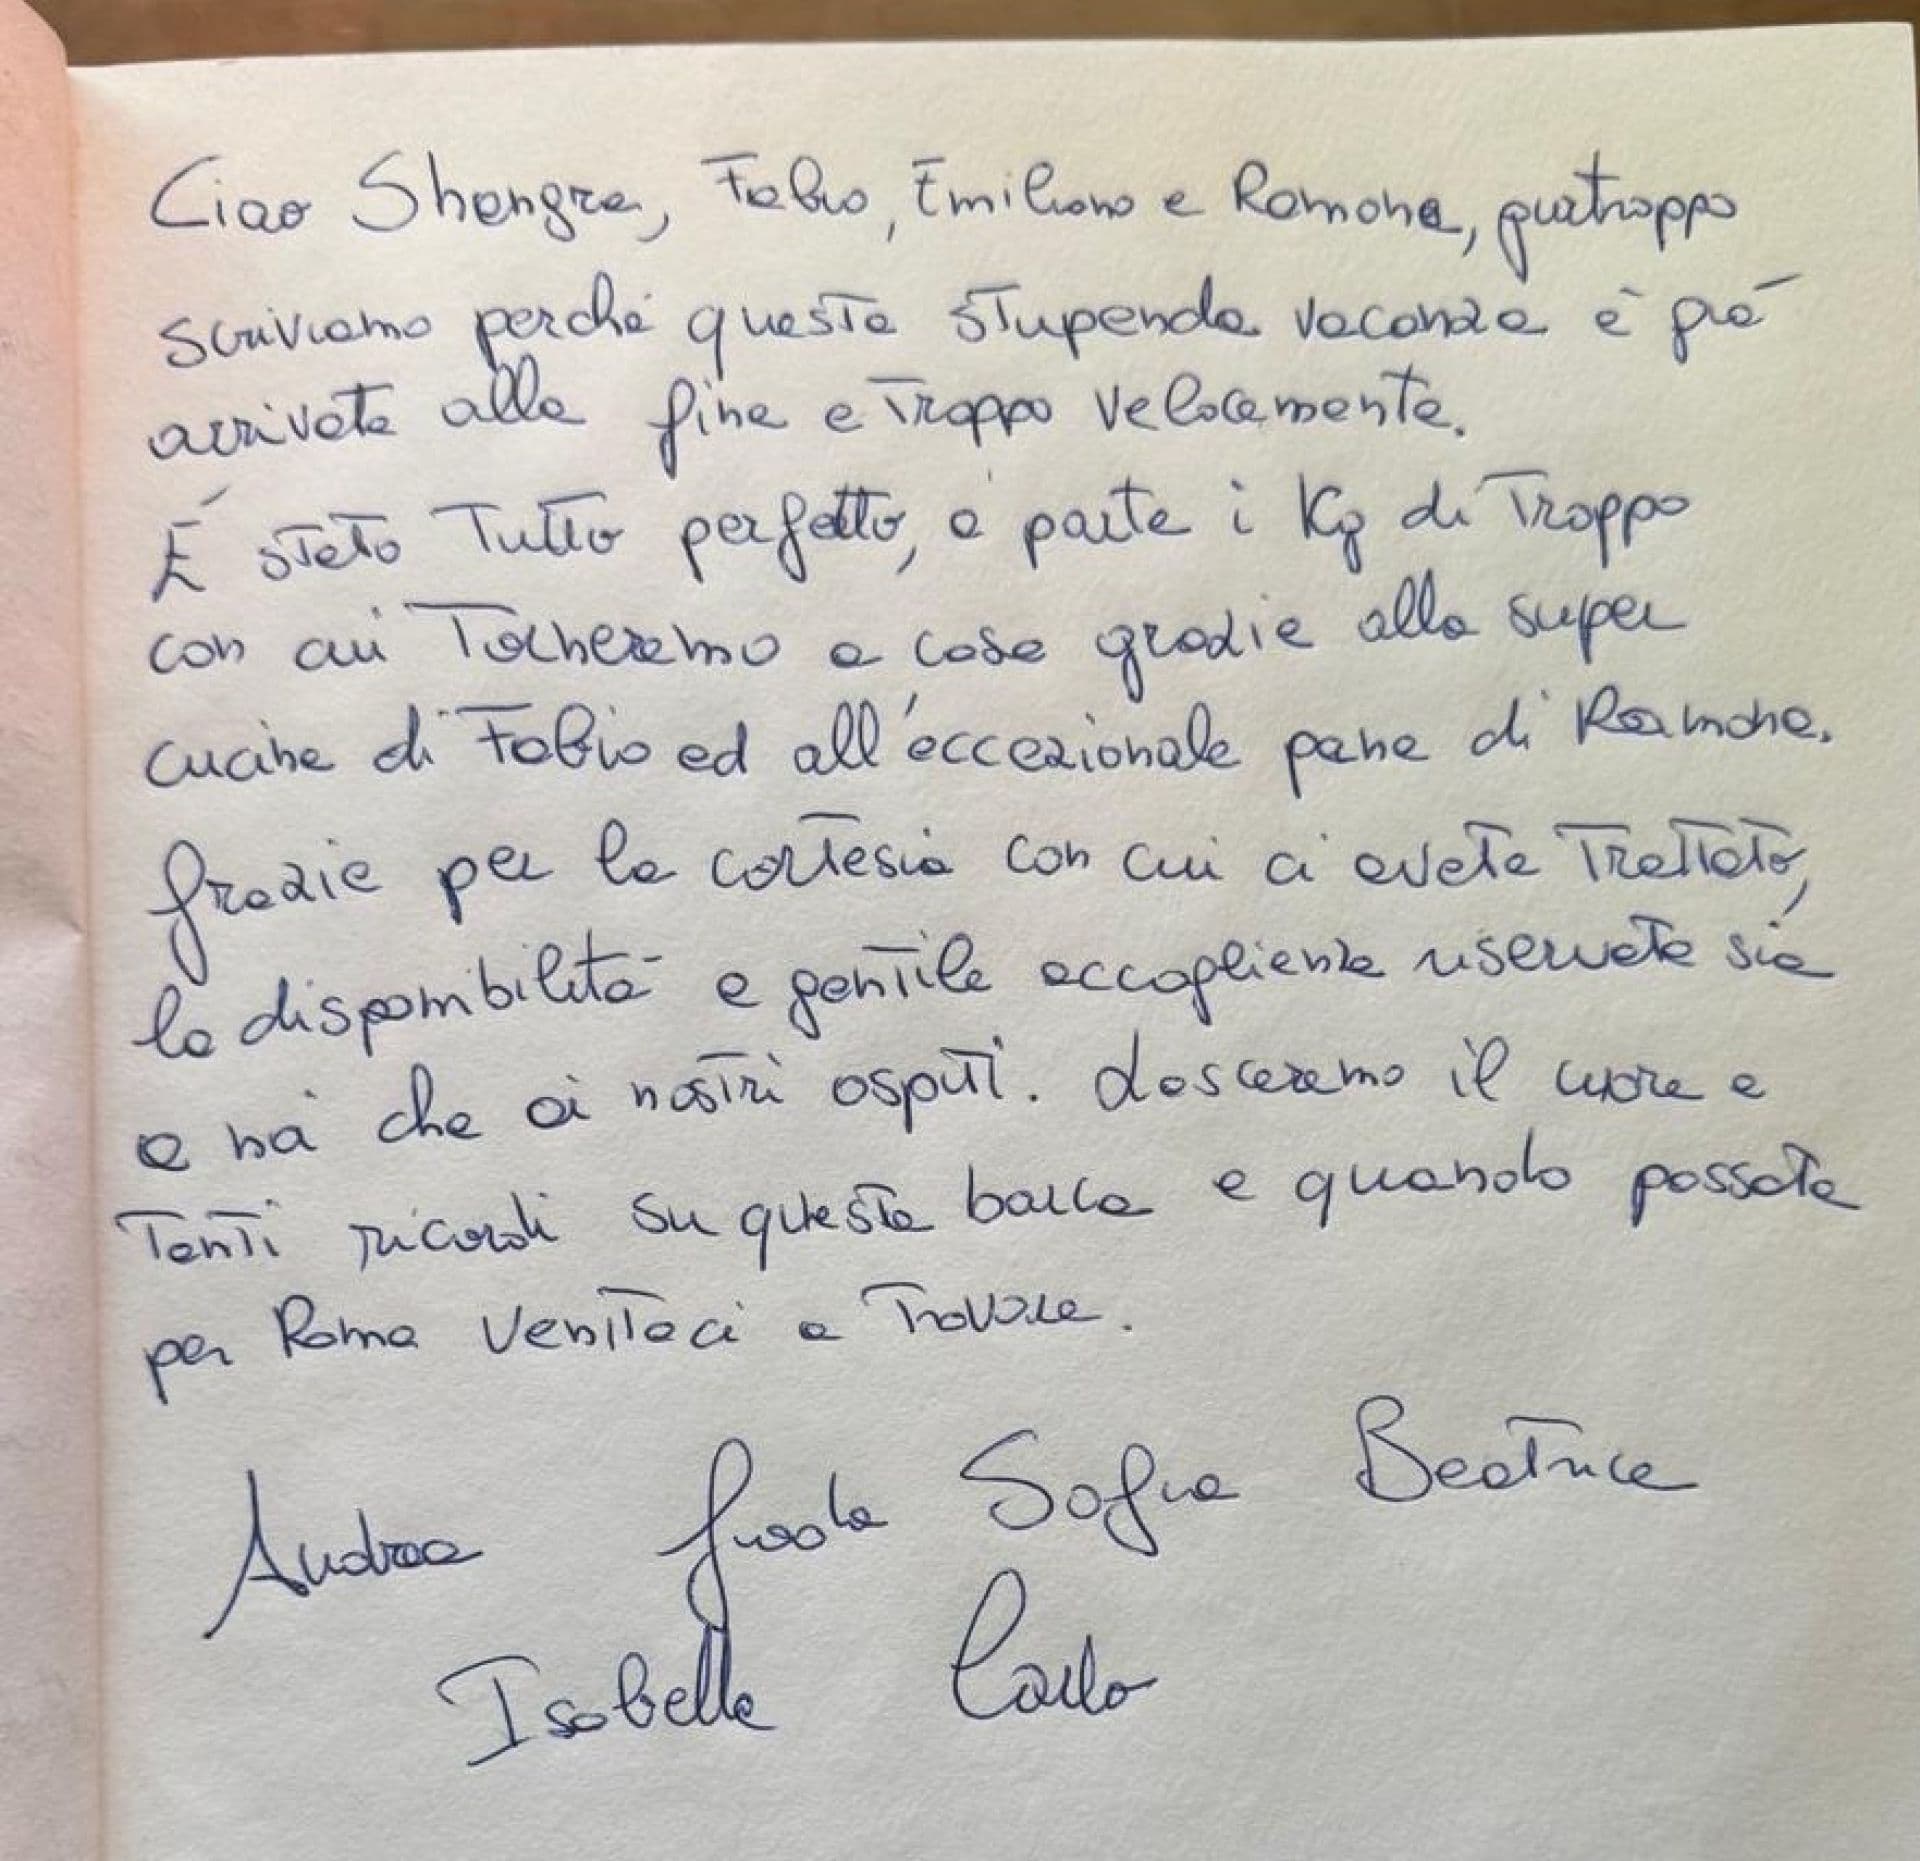 Ciao Shangra, Fabio, Emiliano e Ramona, purtroppo
scriviamo perché questa stupenda vacanza è già
arrivata alla fine e troppo velocemente.
É stato tutto perfetto, a parte i Kg di troppo
con cui torneremo a casa grazie alla super
cucina di Fabio ed all'eccezionale pane di Ramona.
Grazie per la cortesia con cui ci avete trattato,
la disponibilità e gentile accoglienza riservata sia
a noi che ai nostri ospiti. Lasceremo il cuore e
tanti ricordi su questa barca e quando passate
per Roma veniteci a trovare.
Andrea Giada Sofia Beatrice
Isabella Carlo